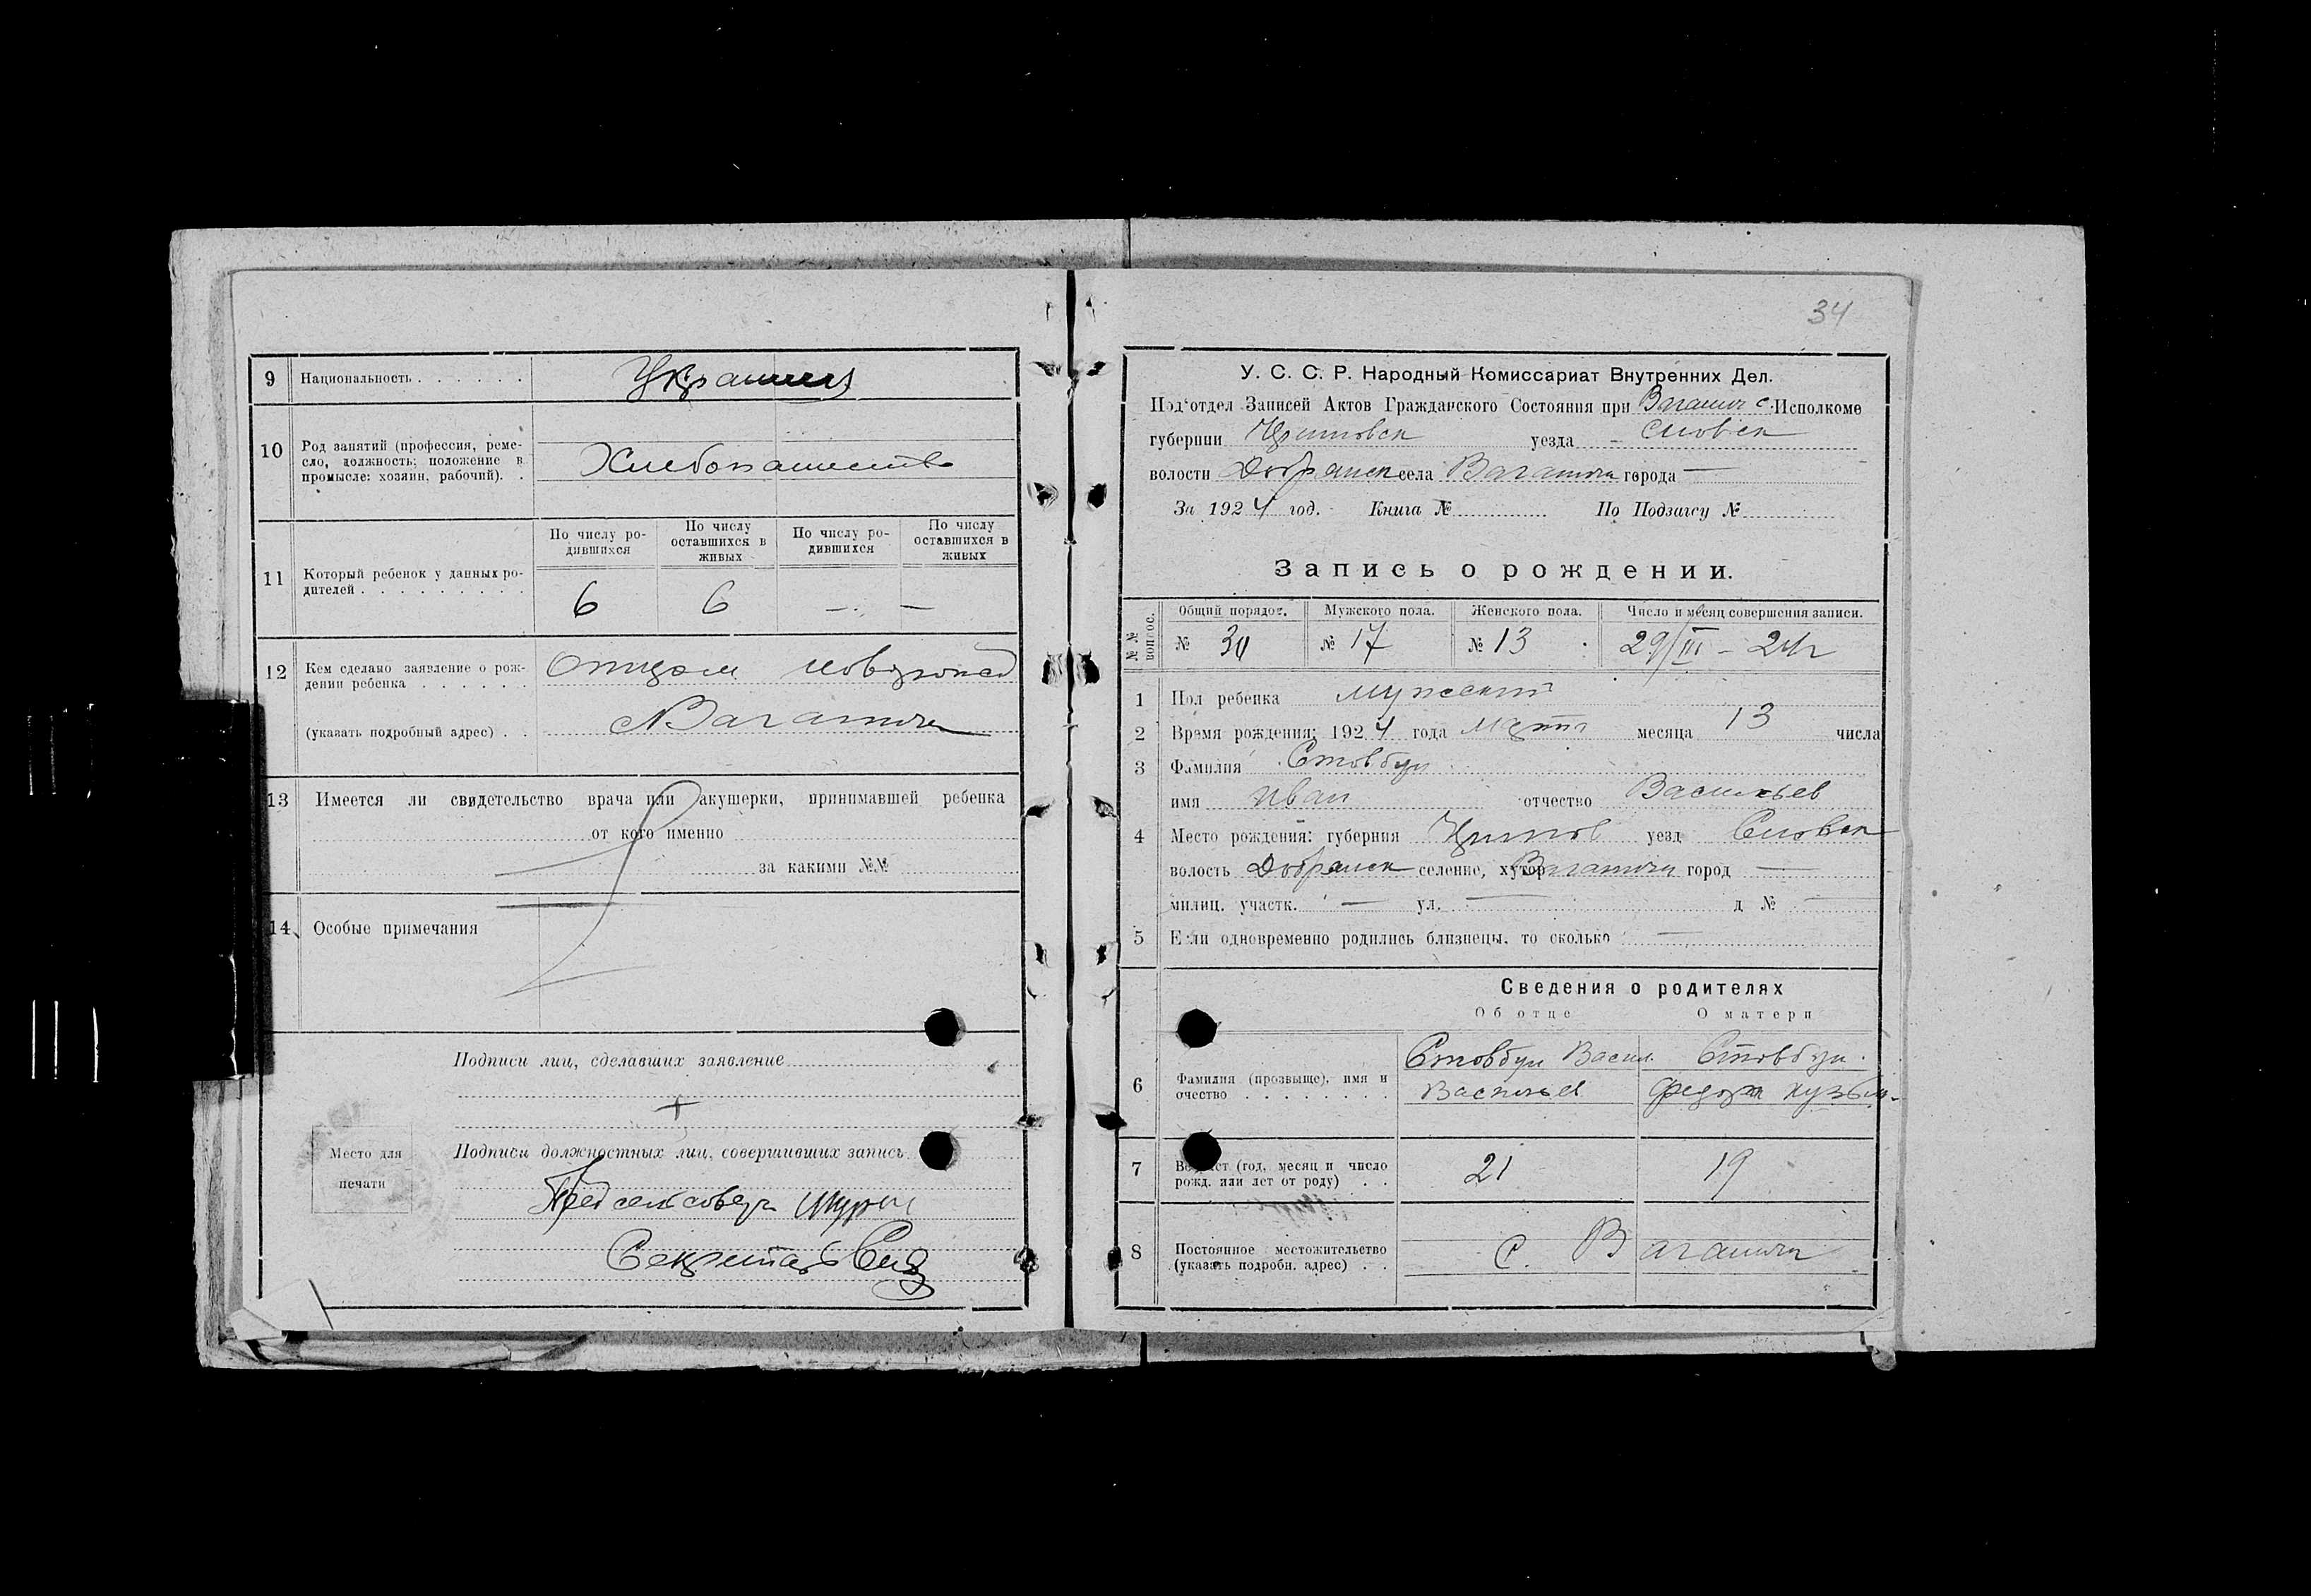 9 Национальность . . . . . . Украинец
10 Род занятий (профессия, реме-
сло, должность; положение в
промысле: хозяин, рабочий). . Хлебопашество
По числу ро-
дившихся
По числу
оставшихся в
живых
По числу ро-
дившихся
По числу
оставшихся в
живых
11 Который ребенок у данных ро-
дителей . . . . . . . . . 6 6 — —
12 Кем сделано заявление о рож-
дении ребенка . . . . . . Отцом новорожд
(указать подробный адрес) . . с Ваганичи
13 Имеется ли свидетельство врача или акушерки, принимавшей ребенка
от кого именно
за какими №№
14 Особые примечания
Подписи лиц, сделавших заявление
+
Место для
печати
Подписи должностных лиц, совершивших запись
Пред сельсовета
Секретарь
34
У. С. С. Р. Народный Комиссариат Внутренних Дел.
Под'отдел Записей Актов Гражданского Состояния при Ваганич с. Исполкоме
губернии уезда Сновск
волости Добрянск села Ваганичи города —
За 1924 год. Книга № По Подзагсу №
Запись о рождении.
№ №
вопрос.
Общий порядок. Мужского пола. Женского пола. Число и месяц совершения записи.
№ 30 № 17 № 13 29/III - 24 г
1 Пол ребенка мужский
2 Время рождения: 1924 года марта месяца 13 числа
3 Фамилия Стовбун
имя Иван отчество Васильев
4 Место рождения: губерния уезд Сновск
волость Добрянск селение, хутор Ваганичи город —
милиц. участк. — ул. — д № —
5 Если одновременно родились близнецы, то сколько —
Сведения о родителях
Об отце О матери
6 Фамилия (прозвыще), имя и
очество . . . . . . . .
Стовбун Васил. Стовбун.
Васильев Федора Кузьм.
7 Возраст (год, месяц и число
рожд. или лет от роду) . . 21 19
8 Постоянное местожительство
(указать подробн. адрес) . . с. Ваганичи